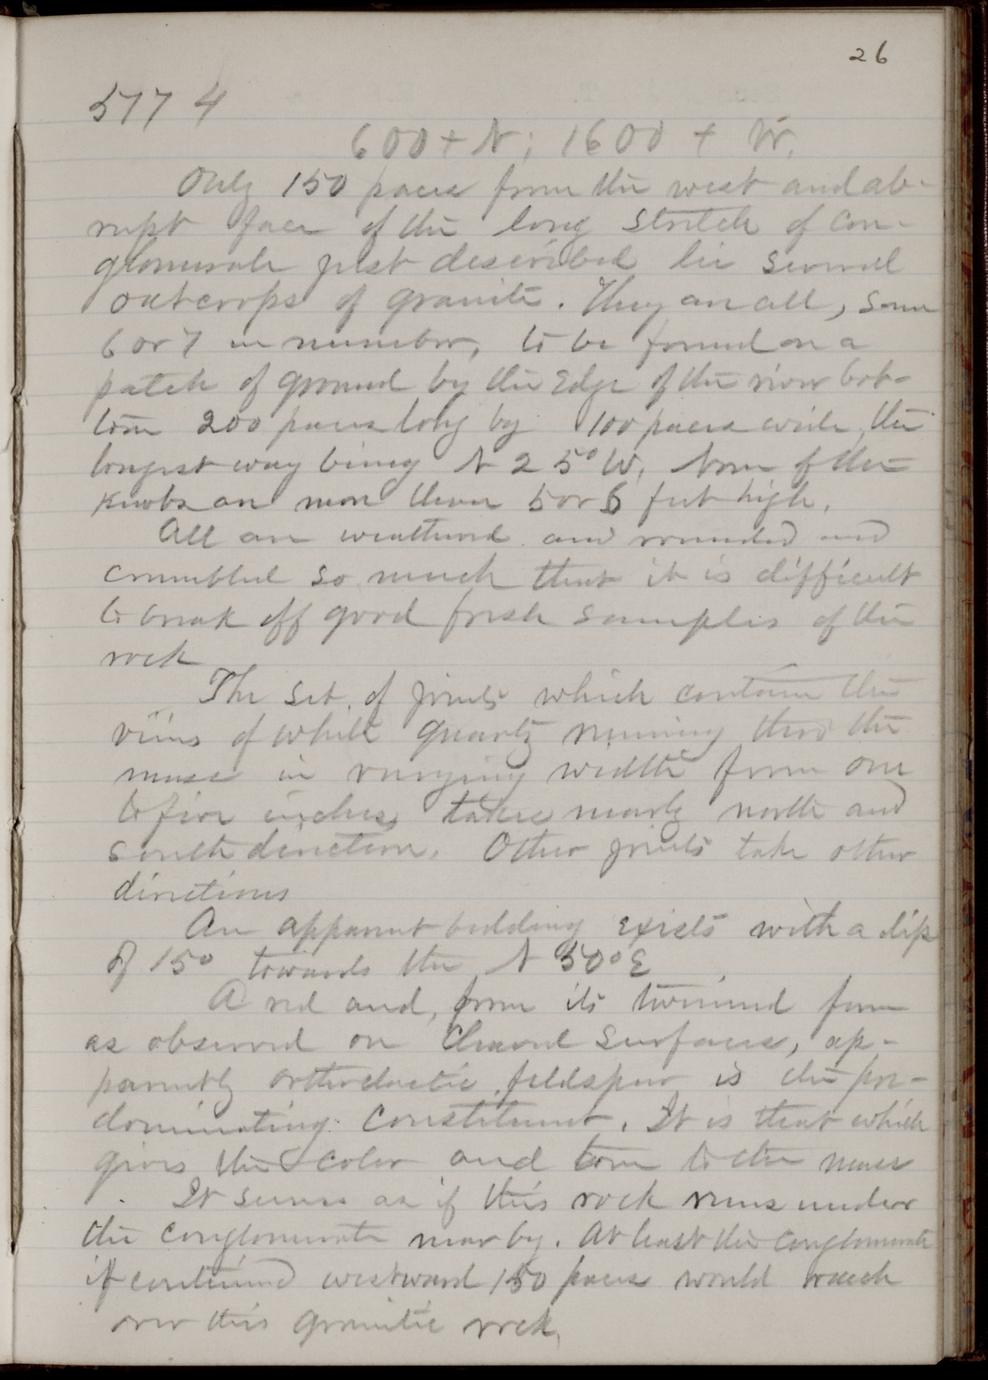 26
5774
600 + N; 1600 + W.
Only 150 paces from the west and ab-
rupt face of the long stretch of con-
glomerate just described lie several
outcrops of granite. They are all, some
6 or 7 in number, to be found on a
patch of ground by the edge of the river bot-
tom 200 paces long by 100 paces wide, the
longest way being N 25° W. None of the
knobs are more than 5 or 6 feet high.
All are weathered and rounded and
crumbled so much that it is difficult
to break off good fresh samples of the
rock
The set of joints which contain the
veins of white quartz running thro the
mass in varying width from one
to five inches takes nearly north and
south direction. Other joints take other
directions
An apparent bedding exists with a dip
of 15° towards the N 50° E
A red and, from its twinned form
as observed on cleaved surfaces, ap-
parently orthoclastic feldspar is the pre-
dominating constituent. It is that which
gives the color and tone to the mass
It seems as if this rock runs under
the conglomerate near by. At least the conglomerate
if continued westward 150 paces would reach
over this granitic rock.